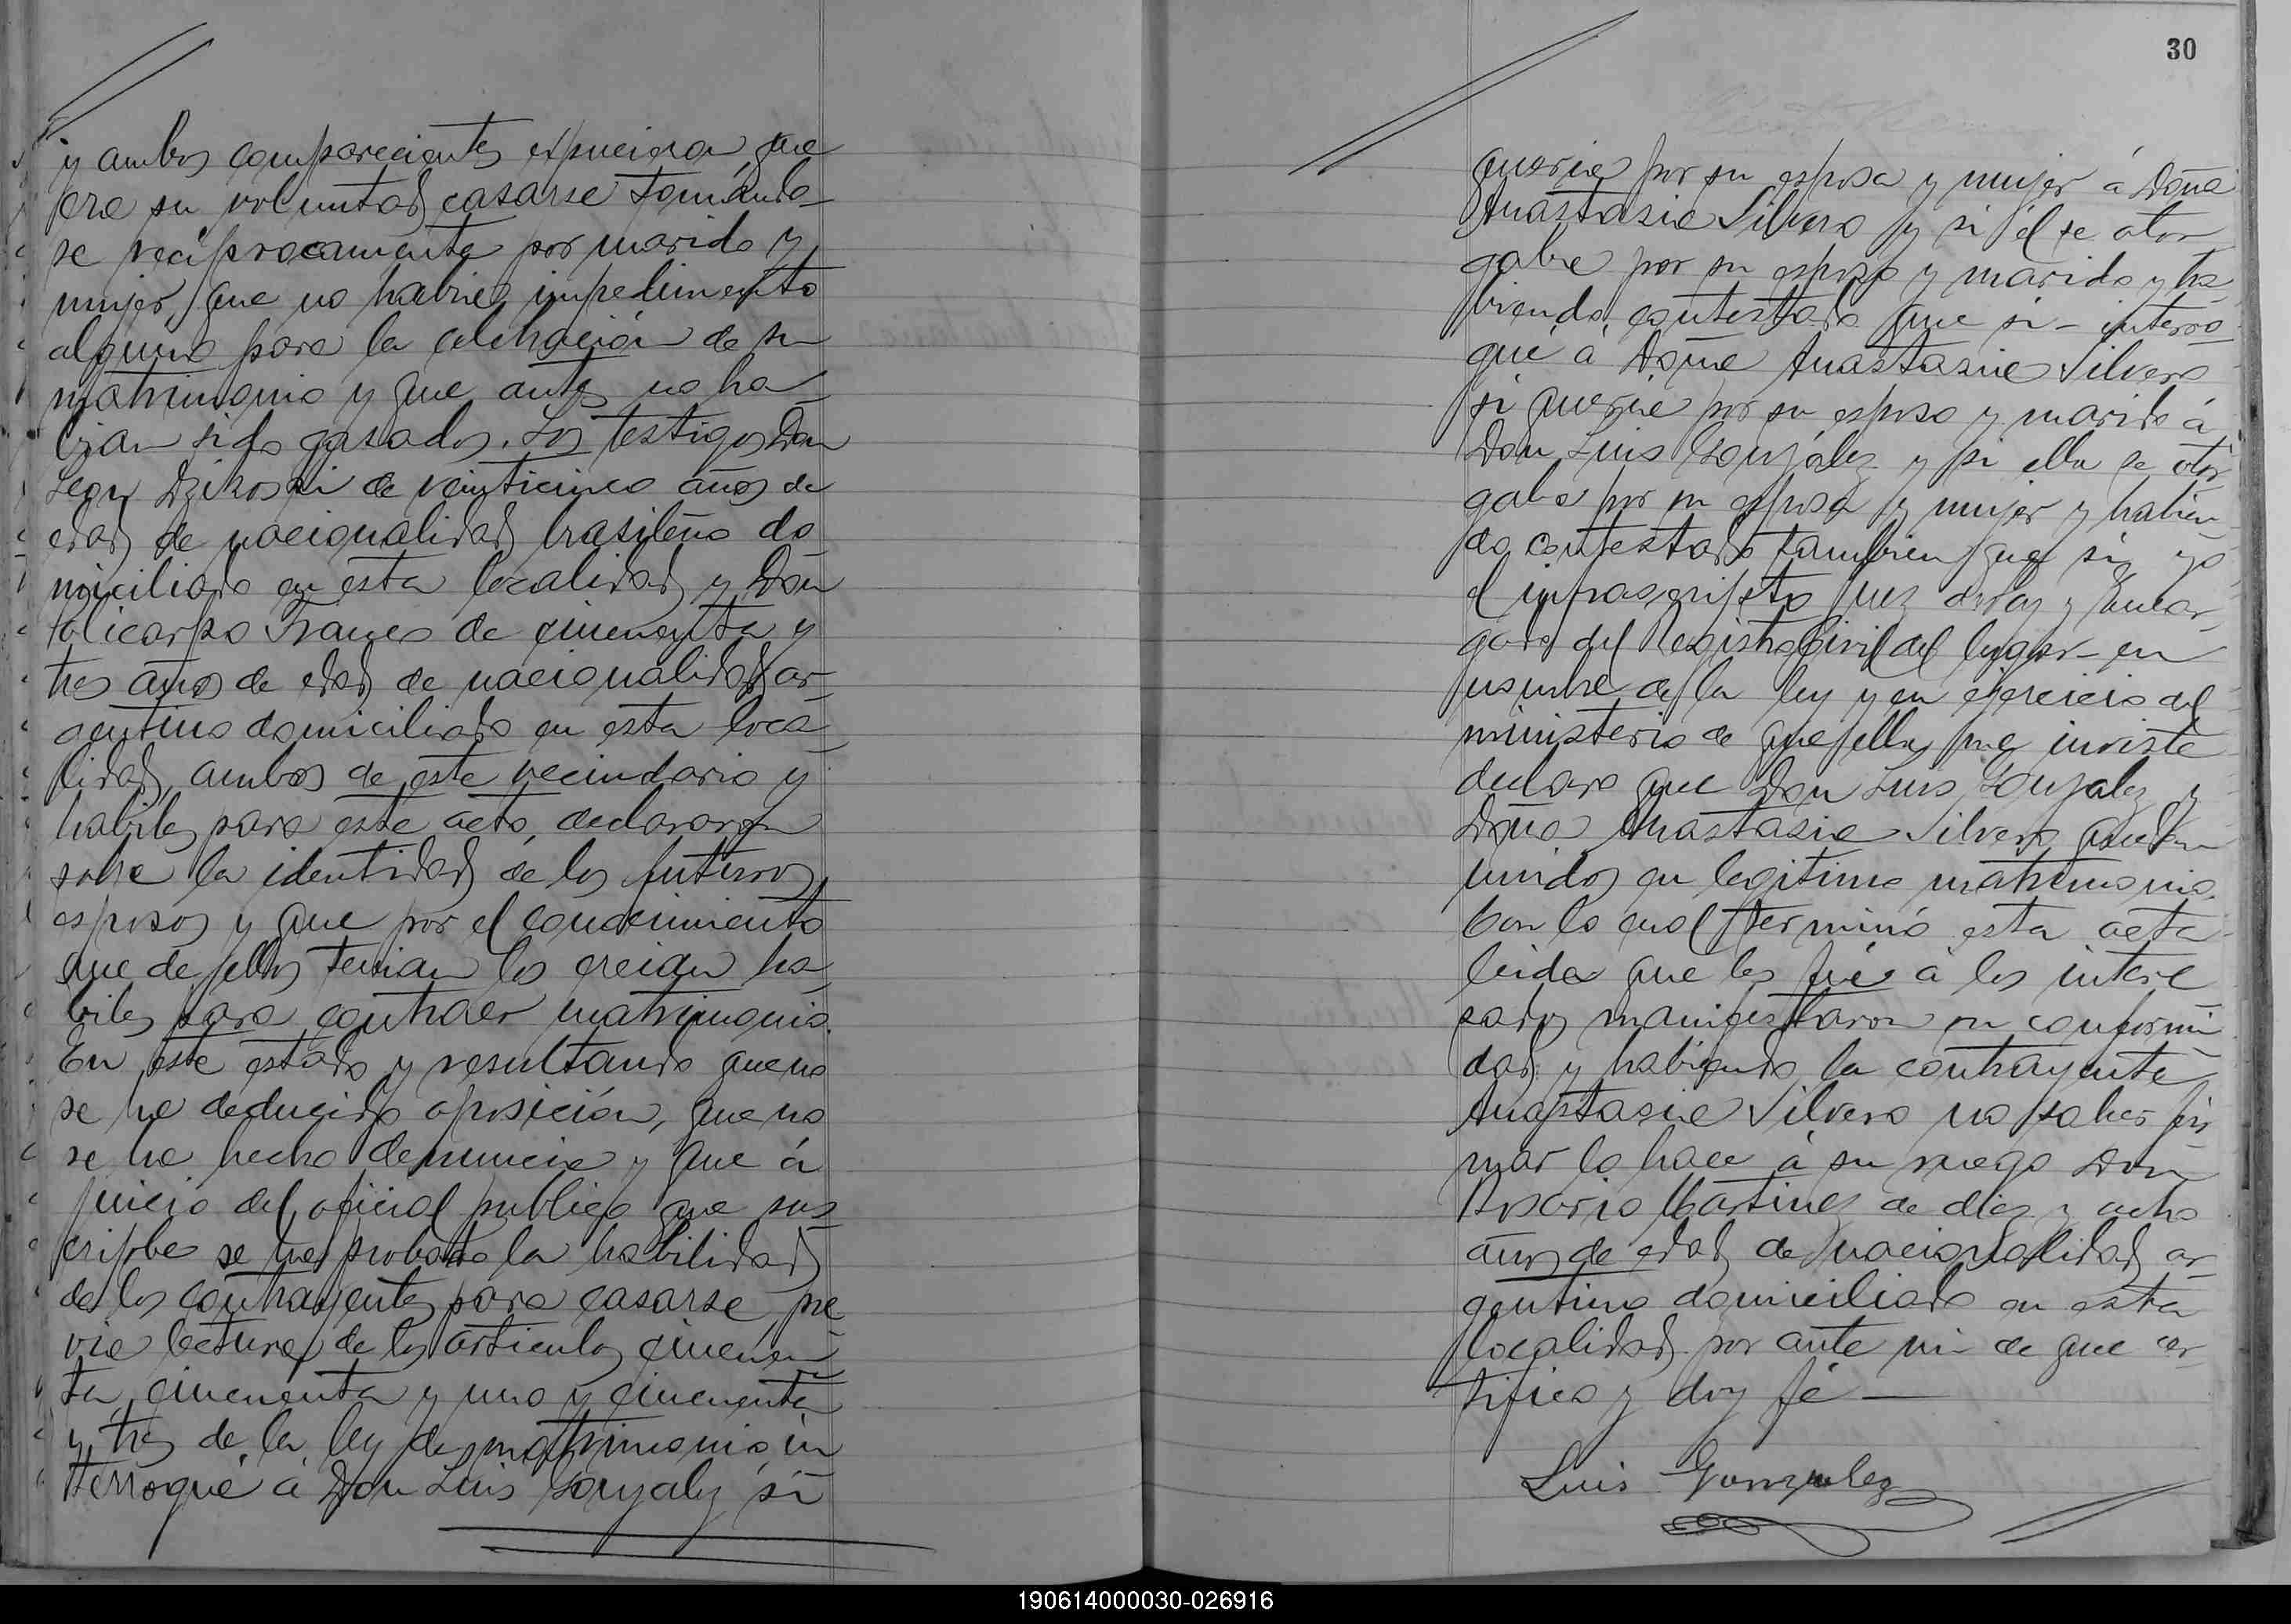 y ambos comparecientes expucieron que
era su voluntad casarse tomando-
se reciprocamente por marido y
mujer, que no habia impedimento
alguno para la celebración de su
matrimonio y que antes no ha-
bian sido casados. Los testigos Don
Leon de veinticinco años de
edad de nacionalidad brasileño do-
miciliado en esta localidad y Don
Policarpo Franco de cincuenta y
tres años de edad de nacionalidad ar-
gentino domiciliado en esta loca-
lidad, ambos de este vecindario y
habiles para este acto, declararon
sobre la identidad de los futuros
esposos y que por el conocimiento
que de ellos tenian los creian ha-
biles para contraer matrimonio.
En este estado y resultando que no
se ha deducido oposición, que no
se ha hecho denuncia y que á
juicio del oficial publico que sus-
cribe se ha probado la habilidad
de los contrayentes para casarse, pre-
via lectura de los articulos cincuen-
ta, cincuenta y uno y cincuenta
y tres de la ley de matrimonio in-
terrogué á Don Luis Gonzalez si
30
queria por su esposa y mujer á Doña
Anastasia Silvero y si él se otor
gaba por su esposo y marido y ha-
biendo contestado que si - interro-
gué á Doña Anastasia Silvero
si queria por su esposo y marido á
Don Luis González y si ella se otor
gaba por su esposa y mujer y habien-
do contestado tambien que si, yo
el infrascripto Juez de Paz y Encar-
gado del Registro Civil del lugar en
nombre de la ley y en ejercicio del
ministerio de que ella me inviste
declaro que Don Luis Gonzalez y
Doña Anastasia Silvero quedan
unidos en legitimo matrimonio.
Con lo cual terminó esta acta
leida que les fué á los intere
sados manifestaron su conformi
dad y habiendo la contrayente
Anastasia Silvero no saber fir
mar lo hace á su ruego Don
Rosario Martinez de diez y ocho
años de edad de nacionalidad ar-
gentino domiciliado en esta
localidad por ante mi de que cer-
tifico y doy fé —
Luis Gonzalez
190614000030-026916